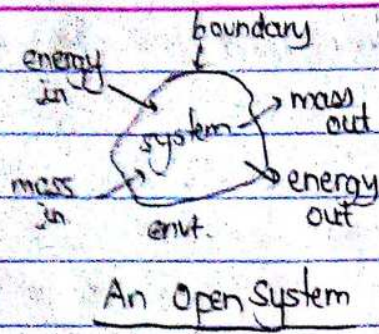 boundary
energy
in
system
mass
out
mass
in
energy
out
envt.
An Open System